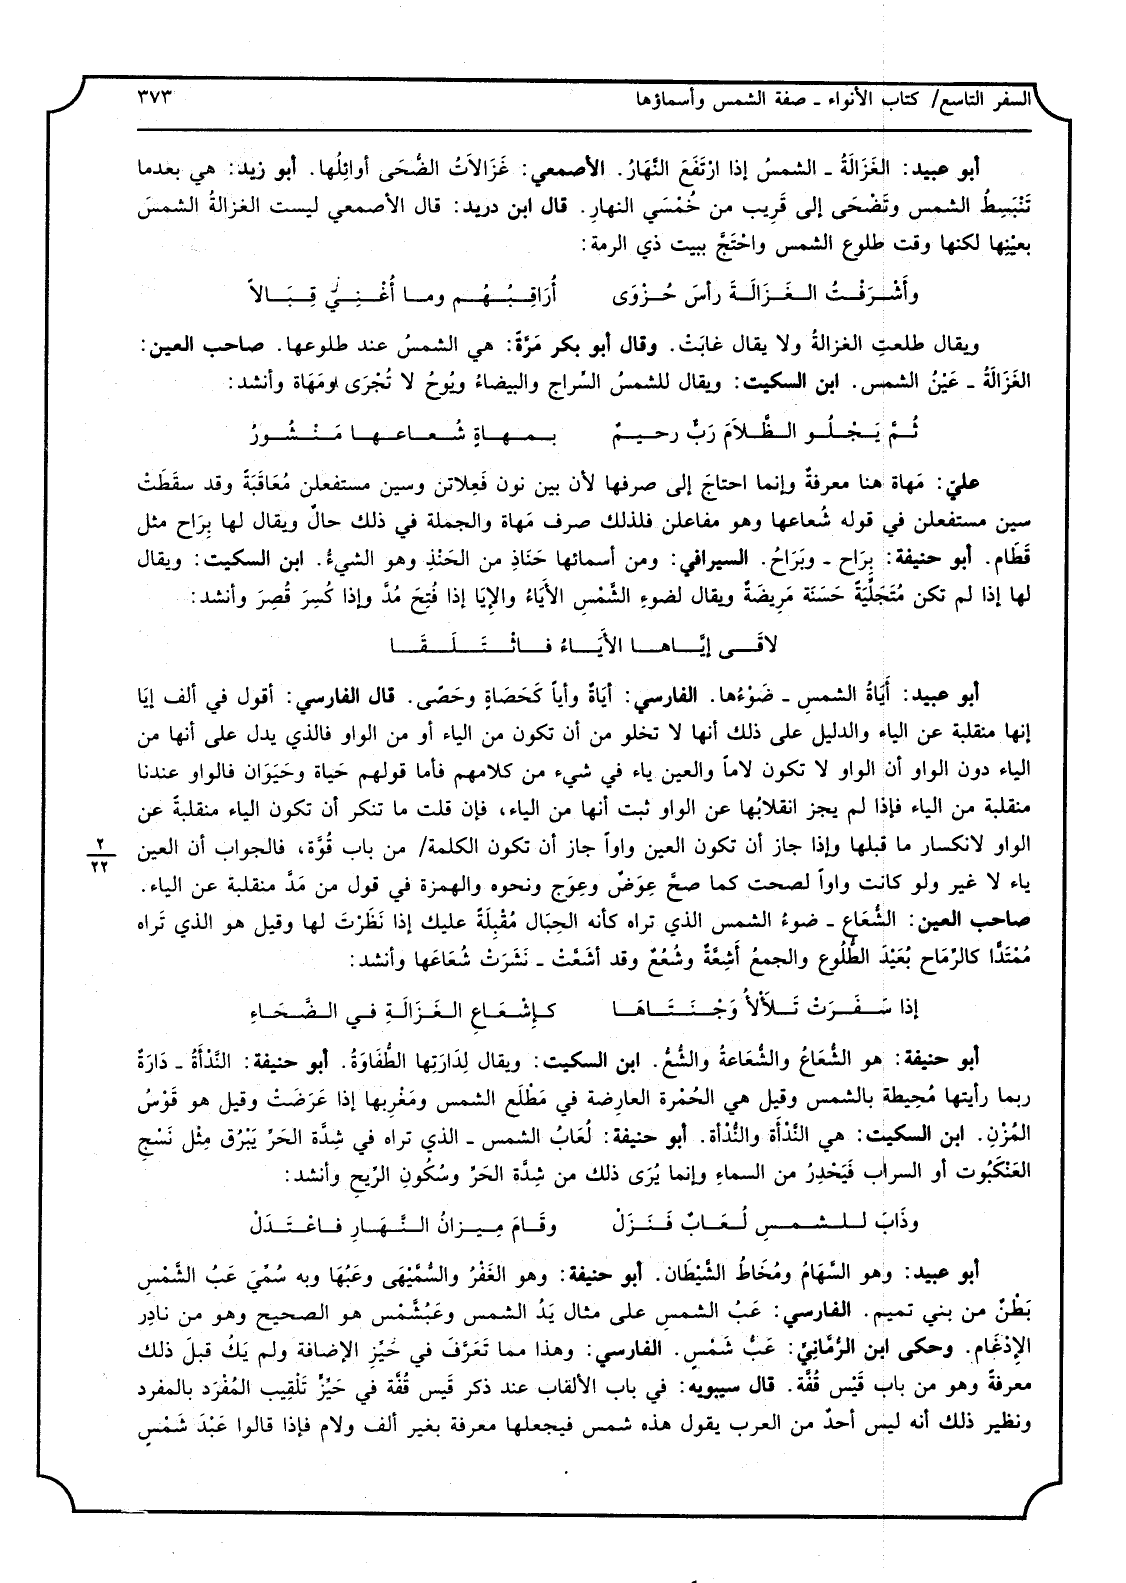 السفر التاسع/ كتاب الأنواء ـ صفة الشمس وأسماؤها ٣٧٣
أبو عبيد: الغَزَالَةُ ـ الشمسُ إذا ارْتَفَعَ النَّهارُ. الأصمعي: غَزَالاَتُ الضُّحَى أوائِلُها. أبو زيد: هي بعدما
تَنْبَسِطُ الشمس وتَضْحَى إلى قَرِيب من خُمْسَي النهارِ. قال ابن دريد: قال الأصمعي ليست الغزالةُ الشمسَ
بعيْنِها لكنها وقت طلوع الشمس واحْتَجَّ ببيت ذي الرمة:
وأَشْرَفْتُ الغَزَالَةَ رأسَ حُزْوَى أُرَاقِبُهُم وما أُغْنِيْ قِبَالاً
ويقال طلعتِ الغزالةُ ولا يقال غابَتْ. وقال أبو بكر مَرَّةً: هي الشمسُ عند طلوعها. صاحب العين:
الغَزَالَةُ ـ عَيْنُ الشمس. ابن السكيت: ويقال للشمسُ السِّراج والبيضاءُ ويُوحُ لا تُجْرَى ومَهَاة وأنشد:
ثُمَّ يَجْلُو الظَّلاَمَ رَبٌّ رحيمٌ بمهاةٍ شُعاعها مَنْشُورُ
عليّ: مَهاة هنا معرفةٌ وإنما احتاجَ إلى صرفها لأن بين نون فَعِلاتن وسين مستفعلن مُعَاقَبَةً وقد سقَطَتْ
سين مستفعلن في قوله شُعاعها وهو مفاعلن فلذلك صرف مَهاة والجملة في ذلك حالٌ ويقال لها بِرَاح مثل
قَطَام. أبو حنيفة: بِرَاح ـ وبَرَاحُ. السيرافي: ومن أسمائها حَنَاذِ من الحَنْذِ وهو الشيءُ. ابن السكيت: ويقال
لها إذا لم تكن مُتَجَلِّيَةً حَسَنَة مَرِيضَةٌ ويقال لضوءِ الشَّمْسِ الأَيَاءُ والإِيَا إذا فُتِحَ مُدَّ وإذا كُسِرَ قُصِرَ وأنشد:
لاقَى إيَّاها الأَيَاءُ فائْتَلَقَا
أبو عبيد: أَيَاةُ الشمسِ ـ ضَوْءُها. الفارسي: أيَاةٌ وأياً كَحَصَاةٍ وحَصًى. قال الفارسي: أقول في ألف إيَا
إنها منقلبة عن الياء والدليل على ذلك أنها لا تخلو من أن تكون من الياء أو من الواو فالذي يدل على أنها من
الياء دون الواو أن الواو لا تكون لاماً والعين ياء في شيء من كلامهم فأما قولهم حَياة وحَيَوَان فالواو عندنا
منقلبة من الياء فإذا لم يجز انقلابُها عن الواو ثبت أنها من الياء، فإن قلت ما تنكر أن تكون الياء منقلبةً عن
الواو لانكسار ما قبلها وإذا جاز أن تكون العين واواً جاز أن تكون الكلمة/ من باب قُوَّة، فالجواب أن العين
٢
٢٢
ياء لا غير ولو كانت واواً لصحت كما صحَّ عِوَضٌ وعِوَج ونحوه والهمزة في قول من مَدَّ منقلبة عن الياء.
صاحب العين: الشُّعَاع ـ ضوءُ الشمس الذي تراه كأنه الحِبَال مُقْبِلَةً عليك إذا نَظَرْتَ لها وقيل هو الذي تَراه
مُمْتَدًّا كالرِّماح بُعَيْدَ الطُّلُوع والجمعُ أَشِعَّةٌ وشُعُعٌ وقد أشَعَّتْ ـ نَشَرَتْ شُعَاعَها وأنشد:
إذا سَفَرَتْ تَلأْلأُ وَجْنَتَاهَا كإِشْعَاعِ الغَزَالَةِ في الضَّحَاءِ
أبو حنيفة: هو الشُّعَاعُ والشُّعاعةُ والشُّعُّ. ابن السكيت: ويقال لِدَارَتِها الطُّفَاوَةُ. أبو حنيفة: النَّدْأَةُ ـ دَارَةٌ
ربما رأيتها مُحِيطة بالشمس وقيل هي الحُمْرة العارِضة في مَطْلَع الشمس ومَغْرِبها إذا عَرَضَتْ وقيل هو قَوْسُ
المُزْنِ. ابن السكيت: هي النَّدْأَة والنُّدْأة. أبو حنيفة: لُعَابُ الشمس ـ الذي تراه في شِدَّة الحَرِّ يَبْرُق مِثْل نَسْجِ
العَنْكَبُوت أو السراب فَيَحْدِرُ من السماءِ وإنما يُرَى ذلك من شِدَّة الحَرِّ وسُكُونِ الرِّيحِ وأنشد:
وذَابَ للشمسِ لُعَابٌ فَنَزَلْ وقَامَ مِيزانُ النَّهَارِ فاعْتَدَلْ
أبو عبيد: وهو السَّهَامُ ومُخَاطُ الشَّيْطَان. أبو حنيفة: وهو الغَفْرُ والسُّمَّيْهَى وعَبُهَا وبه سُمِّيَ عَبُ الشَّمْسِ
بَطْنٌ من بني تميم. الفارسي: عَبُ الشمسِ على مثال يَدُ الشمس وعَبُشَّمْس هو الصحيح وهو من نادِر
الإدْغَام. وحكى ابن الرُّمَّانِيّ: عَبُّ شَمْسٍ. الفارسي: وهذا مما تَعَرَّفَ في حَيِّز الإضافة ولم يَكُ قبلَ ذلك
معرفةً وهو من باب قَيْس قُفَّة. قال سيبويه: في باب الألقاب عند ذكر قَيس قُفَّة في حَيِّزْ تَلْقِيب المُفْرَد بالمفرد
ونظير ذلك أنه ليس أحدٌ من العرب يقول هذه شمس فيجعلها معرفة بغير ألف ولام فإذا قالوا عَبْدَ شَمْسٍ